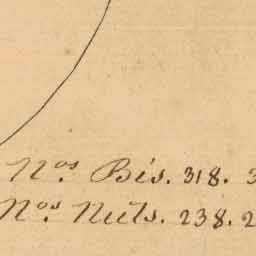 Nos. Bis. 318. 3
Nos. Nuts. 238. 2